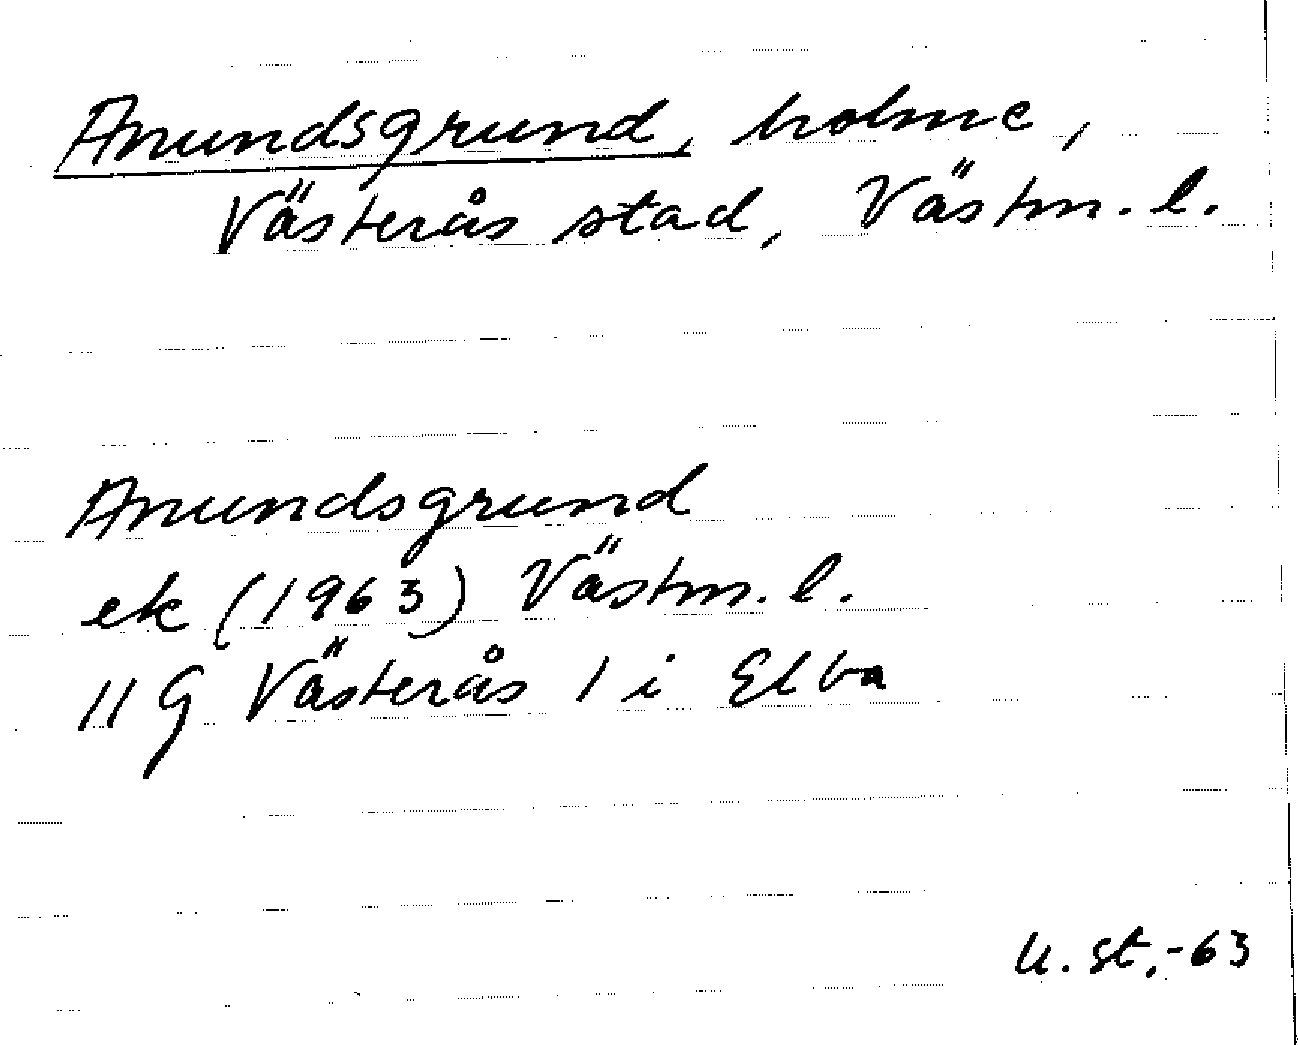 Anundsgrund, holme,
Västerås stad, Västm. l.
Anundsgrund
ek (1963) Västm. l.
11G Västerås 1 i Elba
U. st, -63